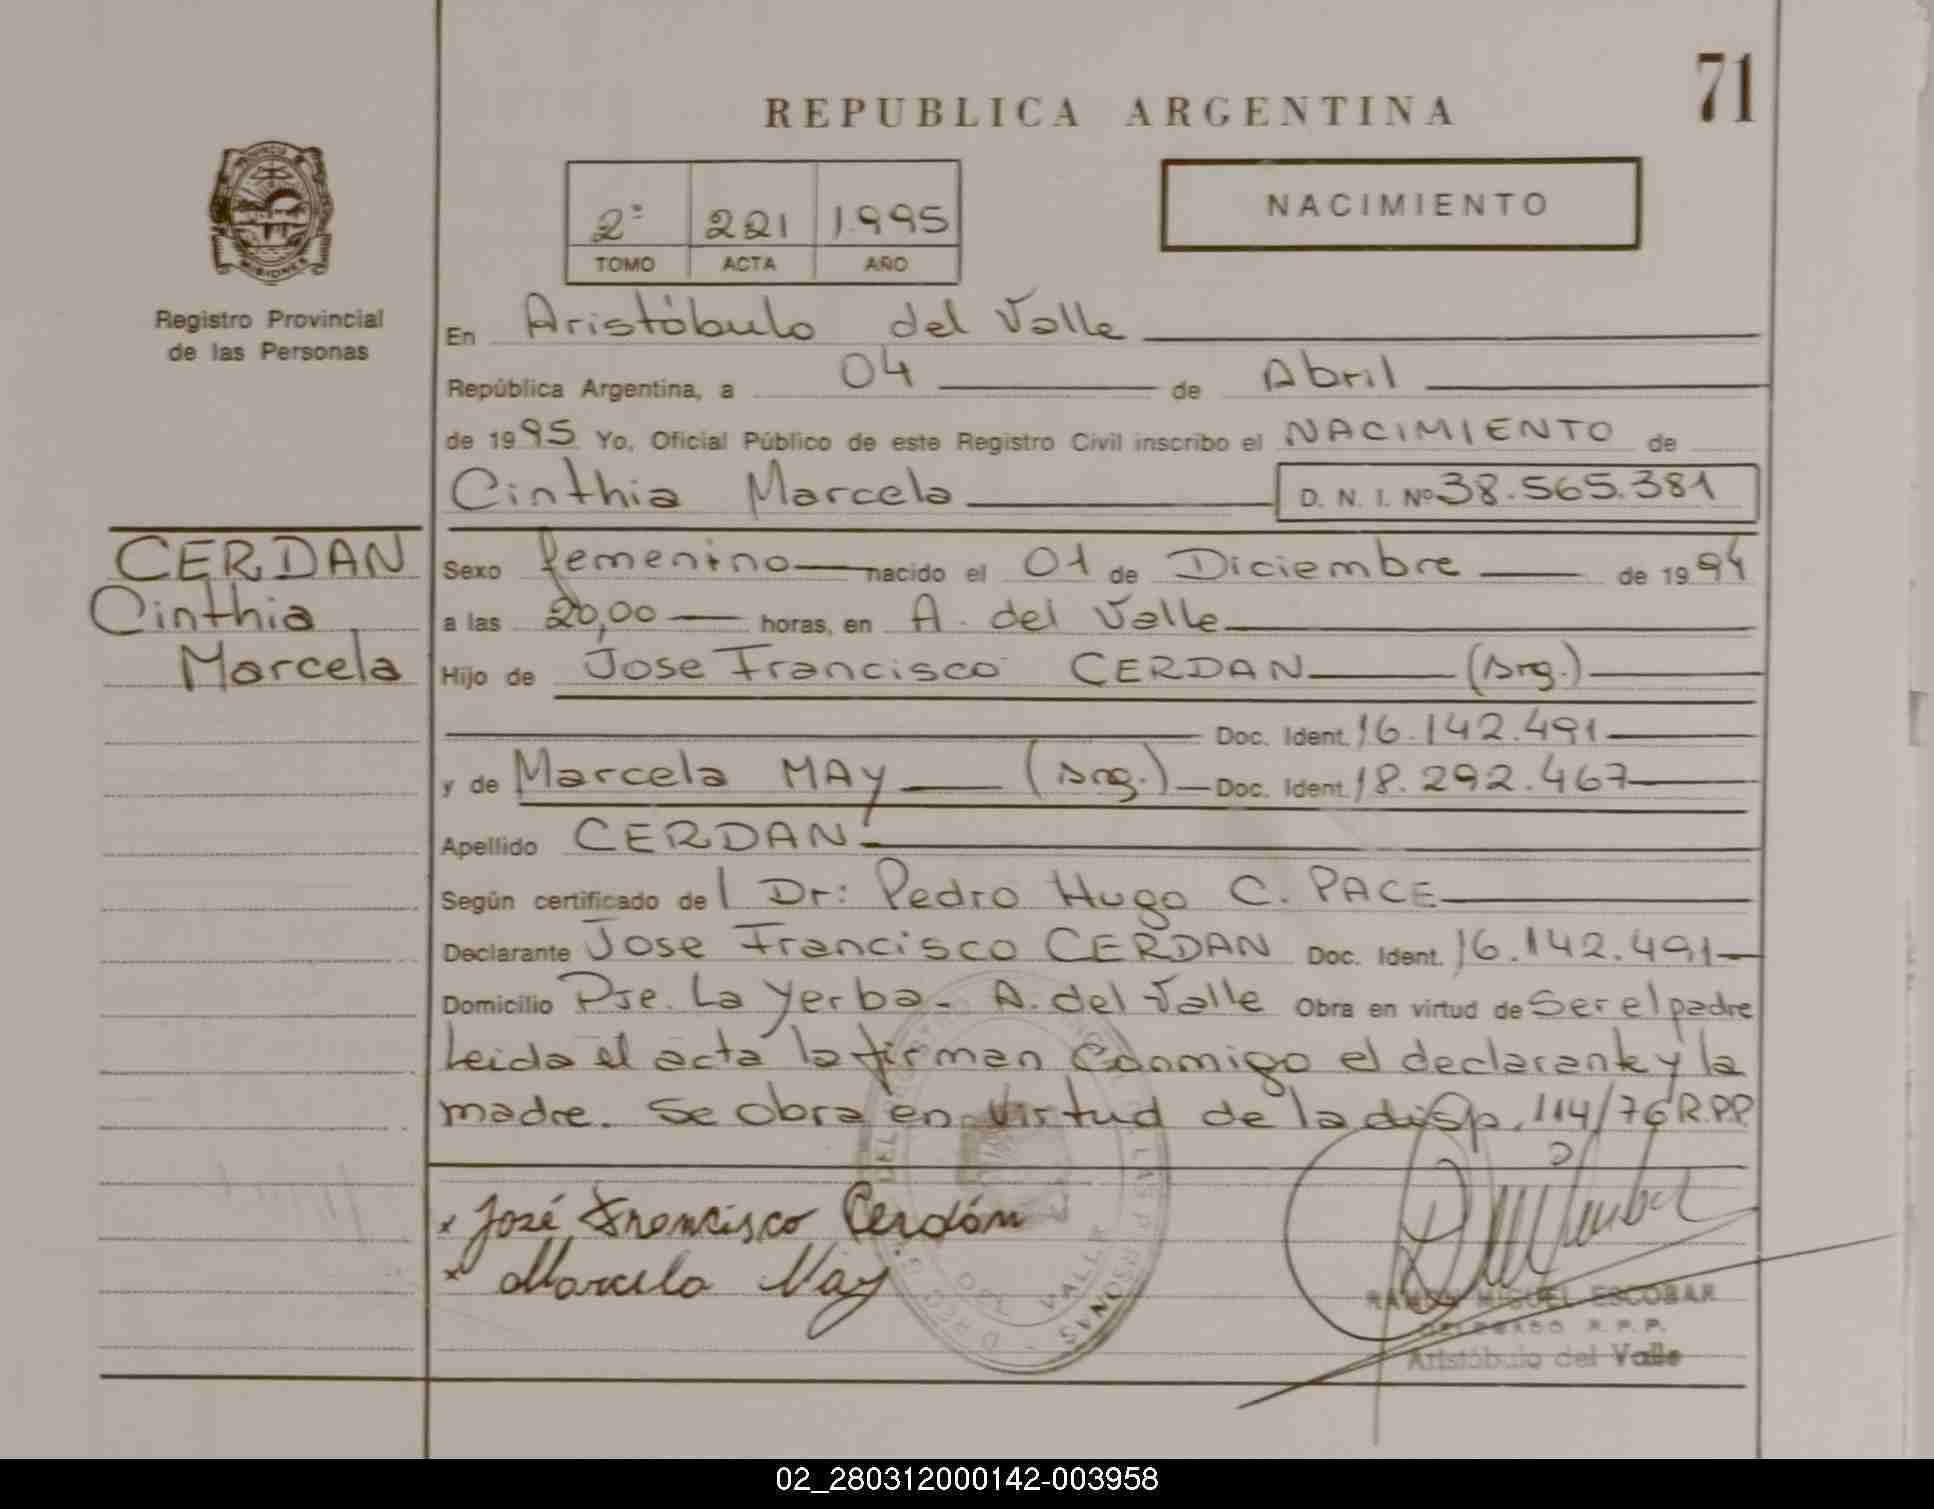 71
REPUBLICA ARGENTINA
NACIMIENTO
2º 221 1.995
TOMO ACTA AÑO
PROVINCIA DE MISIONES
Registro Provincial
de las Personas
En Aristóbulo del Valle
República Argentina, a 04 de Abril
de 1995 Yo, Oficial Público de este Registro Civil inscribo el NACIMIENTO de
Cinthia Marcela D. N. I. Nº 38.565.381
CERDAN
Cinthia
Marcela
Sexo femenino nacido el 01 de Diciembre de 1994
a las 20,00 horas, en A. del Valle
Hijo de Jose Francisco CERDAN (Arg.)
Doc. Ident. 16.142.491
y de Marcela MAY (Arg.) Doc. Ident. 18.292.467
Apellido CERDAN
Según certificado del Dr: Pedro Hugo C. PACE
Declarante Jose Francisco CERDAN Doc. Ident. 16.142.491
Domicilio Pje. La Yerba - A. del Valle Obra en virtud de Ser el padre
Leida el acta la firman Conmigo el declarante y la
madre. Se obra en Virtud de la disp. 114/76 R.P.P
x José Francisco Cerdán
x Marcela May
RAMON MIGUEL ESCOBAR
DELEGADO R. P. P.
Aristóbulo del Valle
02_280312000142-003958